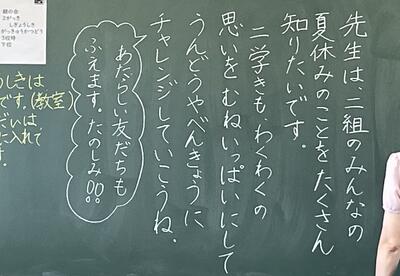 先生は、二組のみんなの
夏休みのことをたくさん
知りたいです。
二学きも、わくわくの
思いを むねいっぱいにして
うんどうやべんきょうに
チャレンジしていこうね。
あたらしい友だちも
ふえます。たのしみ!!
うしきは
です。(教室)
だいは
に入れて
す。
朝の会